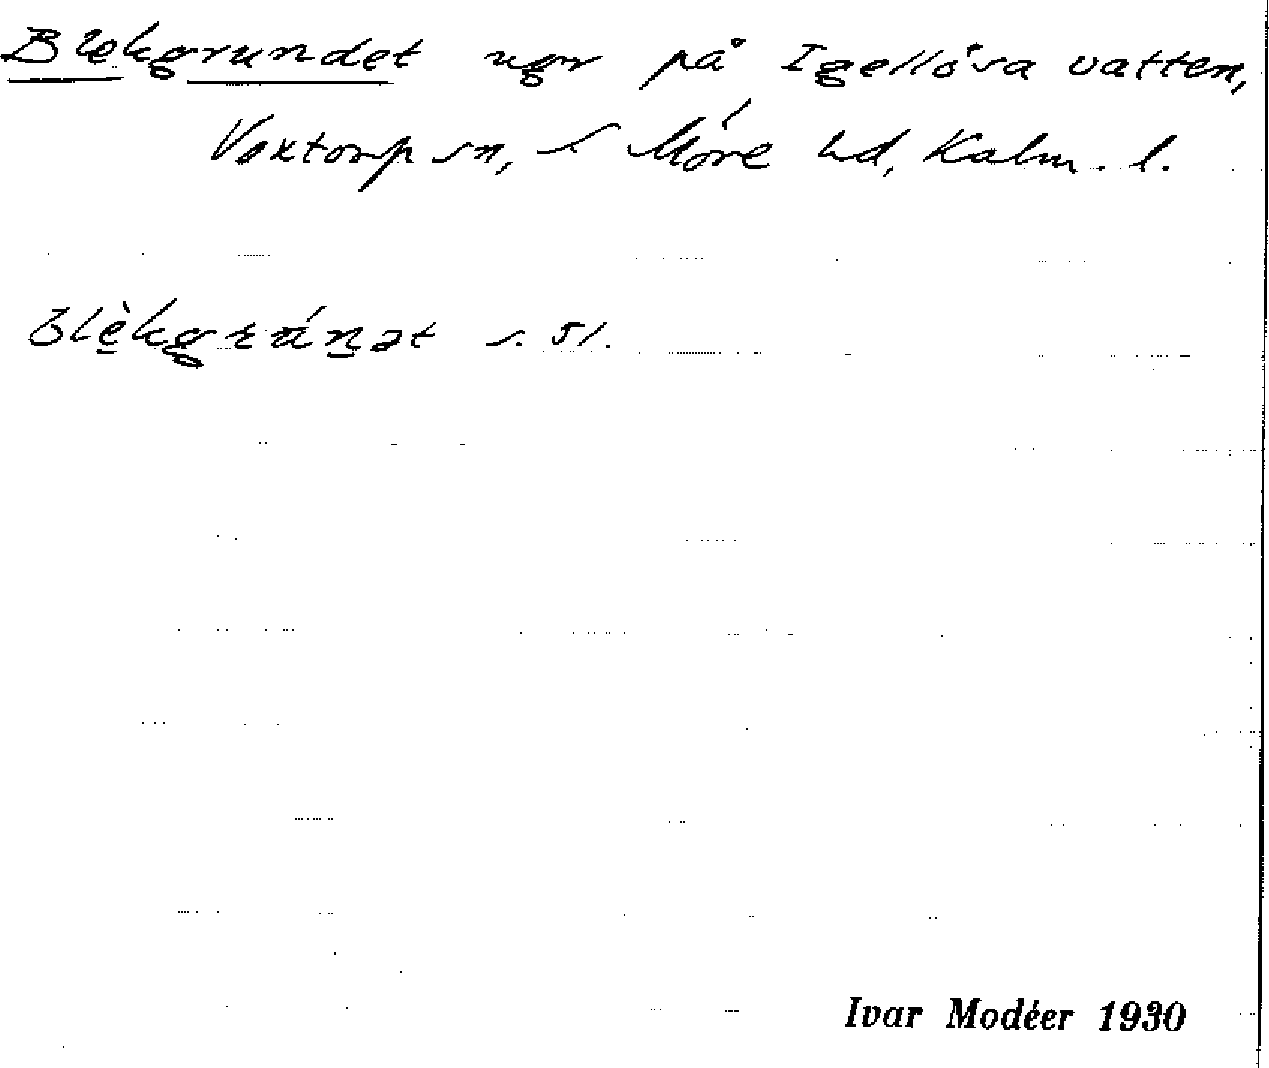 Blekgrundet ugr på Igellösa vatten,
Voxtorp sn, S Möre hd, Kalm. l.
blèkgrúnət s. 51.
Ivar Modéer 1930